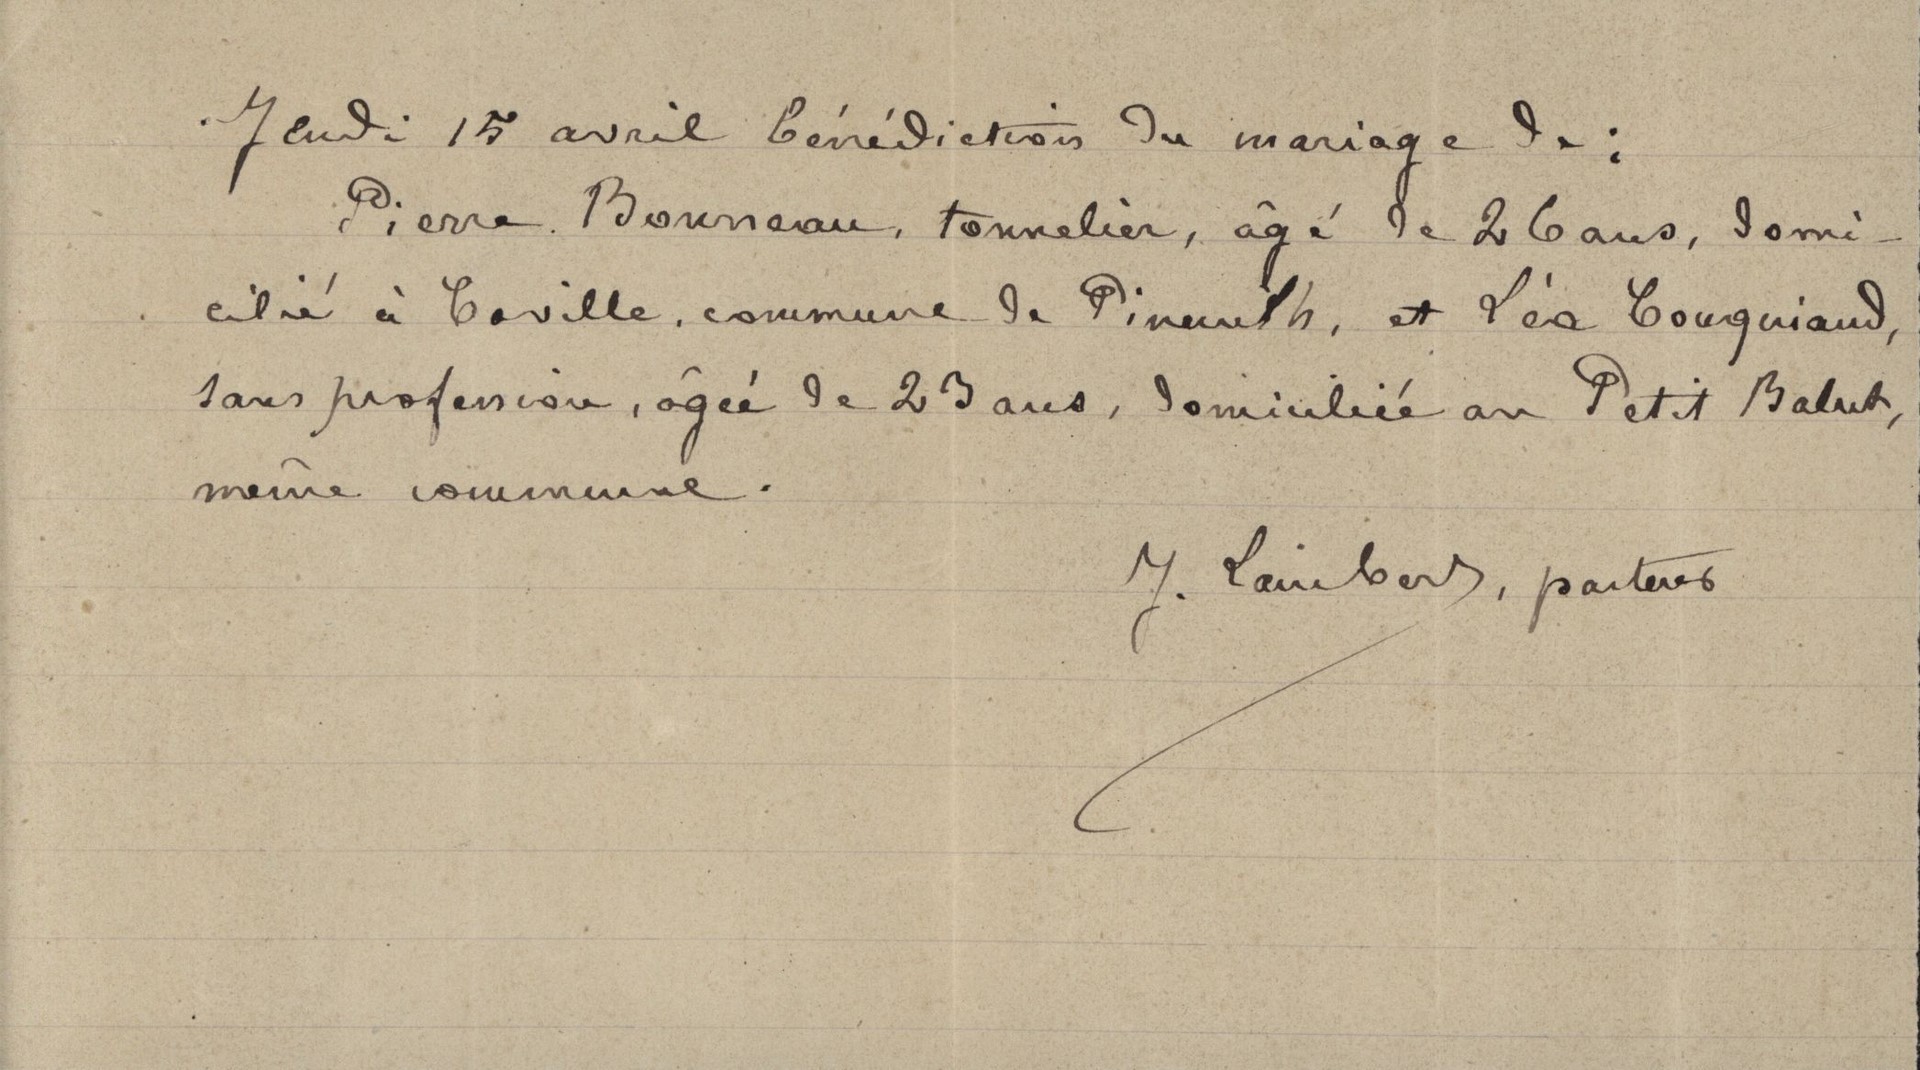 Jeudi 15 avril bénédiction du mariage de :
Pierre Bonneau, tonnelier, âgé de 26 ans, domi-
cilié à Coville, commune de Pineuilh, et Léa Couquiaud,
sans profession, âgée de 23 ans, domiciliée au Petit Balut,
même commune.
J. Lambert, pasteur